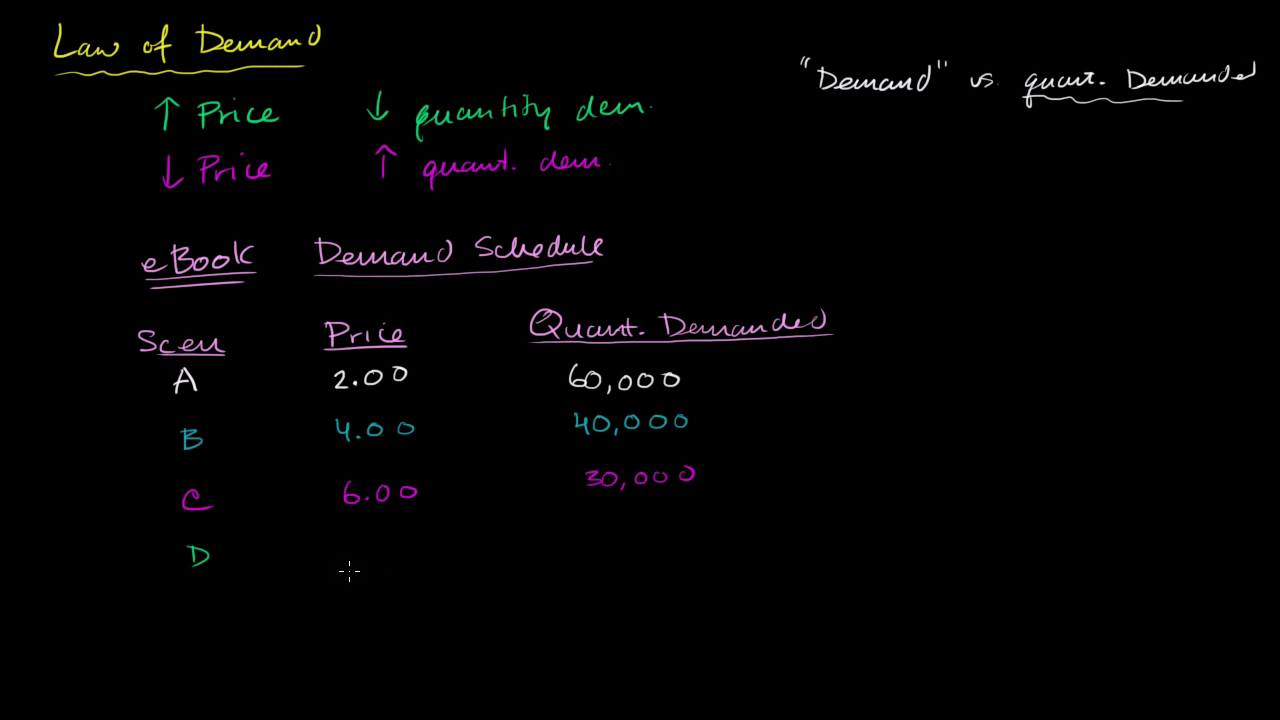 Law of Demand
"Demand" vs. quant. Demanded
↑ Price ↓ quantity dem.
↓ Price ↑ quant. dem.
eBook Demand Schedule
Scen Price Quant. Demanded
A 2.00 60,000
B 4.00 40,000
C 6.00 30,000
D